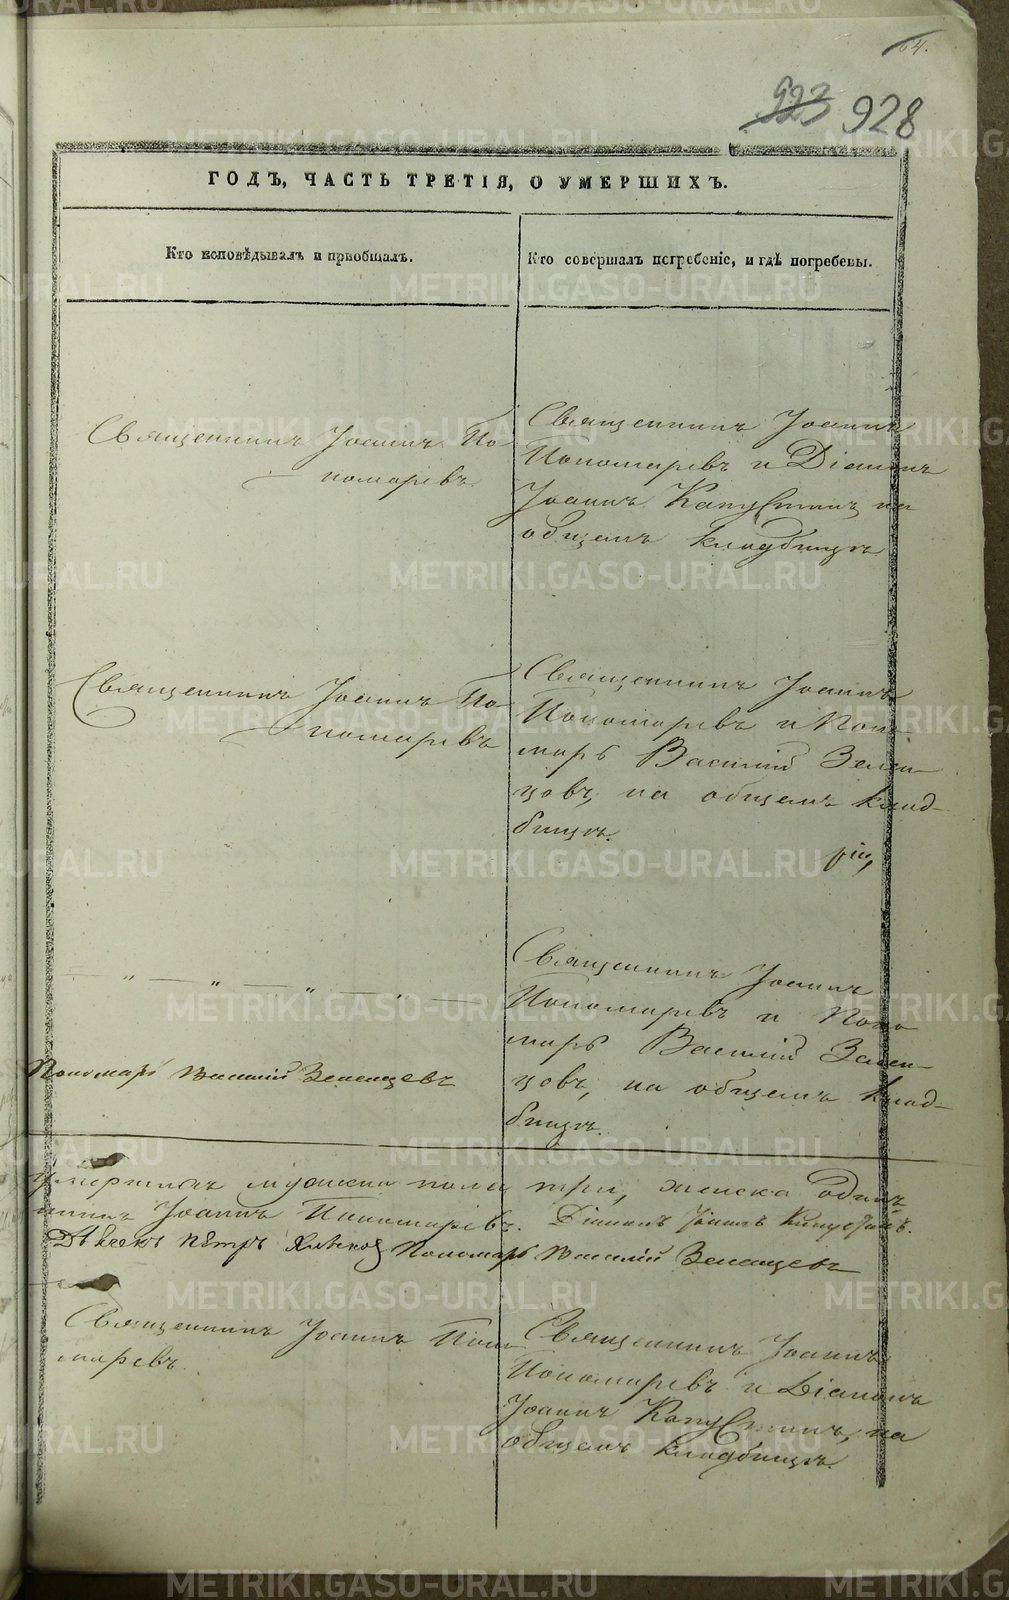 64.
923 928
ГОДЪ, ЧАСТЬ ТРЕТІЯ, О УМЕРШИХЪ.
Кто исповѣдывалъ и пріобщалъ.
Кто совершалъ погребеніе, и гдѣ погребены.
Священникъ Іоаннъ По
номаревъ
Священникъ Іоаннъ
Пономаревъ и Діаконъ
Іоаннъ Капустинъ на
общемъ кладбищѣ
Священникъ Іоаннъ По
номаревъ
Священникъ Іоаннъ
Пономаревъ и Поно
марь Василій Зелен
цовъ, на общемъ клад-
бищѣ.
— " — " — " — " —
Священникъ Іоаннъ
Пономаревъ и Поно
марь Василій Зелен-
цовъ, на общемъ клад-
бищѣ.
Пономарь Василій Зеленцевъ
умершихъ мужска пола три, женска одинъ
никъ Іоаннъ Пономаревъ. Діаконъ Іоаннъ Капустинъ.
Дьячекъ Петръ Пономарь Василій Зеленцевъ
Священникъ Іоаннъ Поно
маревъ.
Священникъ Іоаннъ
Пономаревъ и Діаконъ
Іоаннъ Капустинъ, на
общемъ кладбищѣ.
METRIKI.GASO-URAL.RU